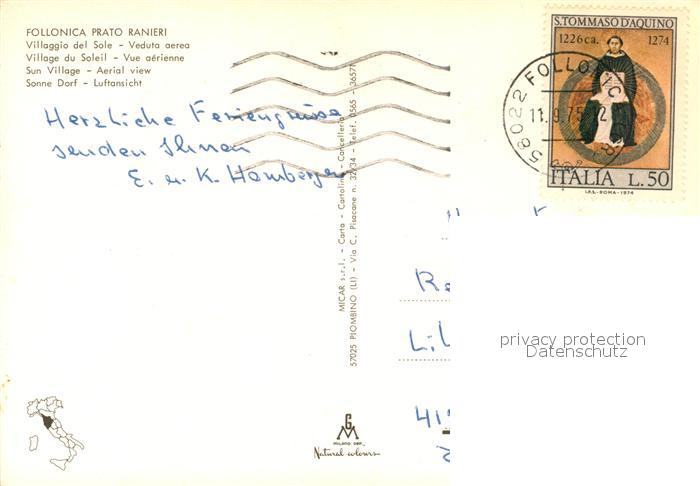 FOLLONICA PRATO RANIERI
Villaggio del Sole – Veduta aerea
Village du Soleil – Vue aérienne
Sun Village – Aerial view
Sonne Dorf – Luftansicht
Herzliche Feriengrüsse
senden Ihnen
E. u. K. Homberger
MICAR s.r.l. - Carta - Cartoline - Cancelleria
57025 PIOMBINO (LI) - Via C. Pisacane n. 32/34 - Telef. 0565 - 36577
S.TOMMASO D'AQUINO
1226 ca. 1274
58022 FOLLONICA
11.9.75
ITALIA L.50
I.P.S.-ROMA-1974
privacy protection
Datenschutz
MILANO DEP.
Natural colours